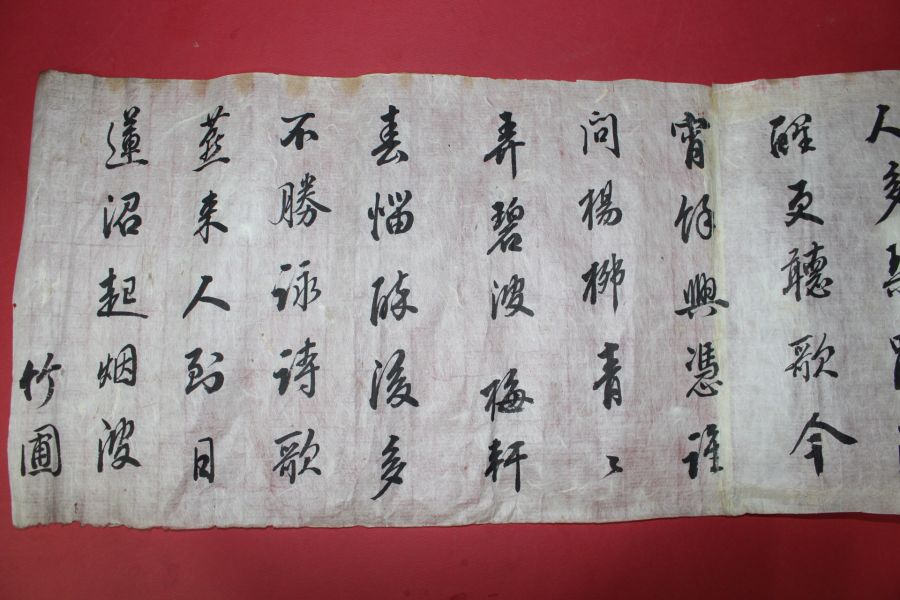 人多
醒更聽歌今
宵餘興憑誰
問楊柳青〻
弄碧波 梅軒
春惱醉後多
不勝詠詩歌
燕来人到日
蓮沼起烟波
竹圃